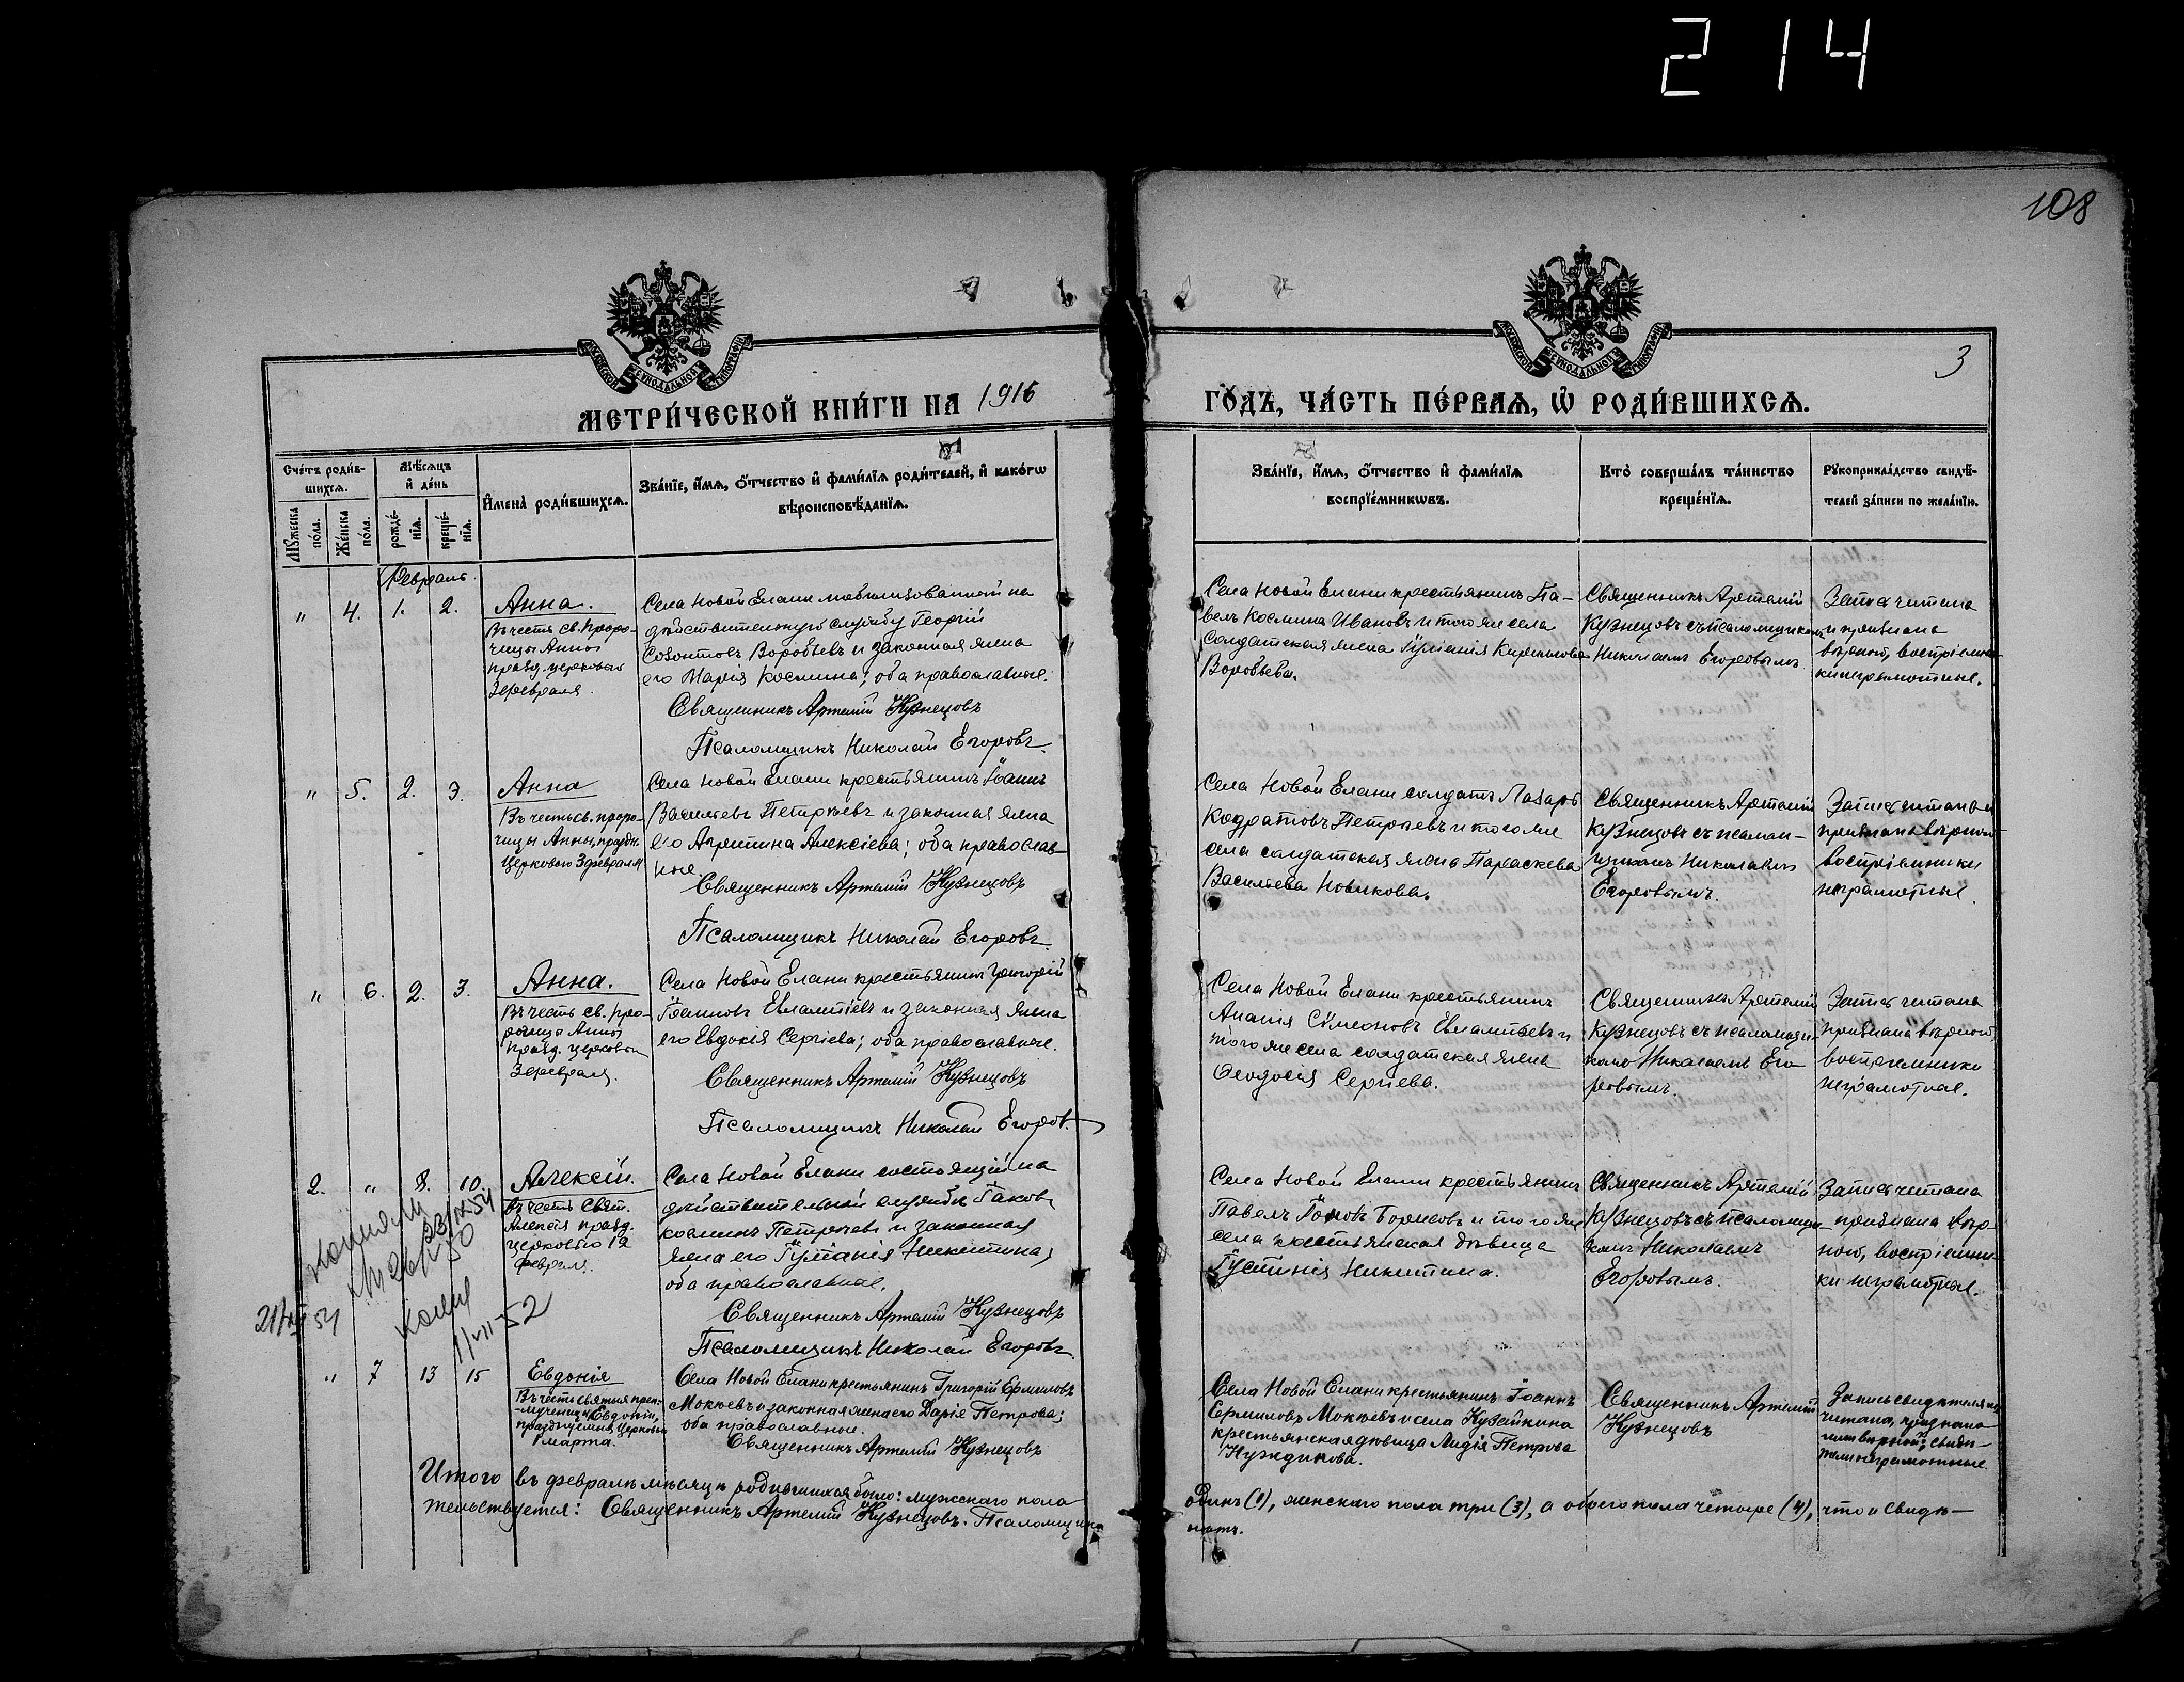 214
108
3
МЕТРИ́ЧЕСКОЙ КНИ́ГИ НА 1916
ГО́ДЪ, ЧА́СТЬ ПЕ́РВАѦ, Ѡ҆ РОДИ́ВШИХСѦ.
Сче́тъ роди́в-
шихсѧ.
Мѣ́сѧцъ
и҆ де́нь
Мꙋ́жеска
по́ла.
Же́нска
по́ла.
рожде́-
нїѧ.
креще́-
нїѧ.
И҆мена̀ роди́вшихсѧ.
Зва́нїе, и҆́мѧ, ѻ҆́тчество и҆ фами́лїѧ роди́телей, и҆ како́гѡ
вѣроисповѣ́данїѧ.
Зва́нїе, и҆́мѧ, ѻ҆́тчество и҆ фами́лїѧ
воспрїе́мникѡвъ.
Кто̀ соверша́лъ та́инство
креще́нїѧ.
Рꙋкоприкла́дство свидѣ́-
телей за́писи по жела́нїю.
Февраль.
" 4. 1. 2.
Анна.
Въ честь св. проро-
чицы Анны
празд. церковью
3 февраля.
Села Новой Елани мобилизованный на
действительную службу Георгій
Созонтовъ Воробьевъ и законная жена
его Марія Космина; оба православные.
Священникъ Артемій Кузнецовъ
Псаломщикъ Николай Егоровъ.
Села Новой Елани крестьянинъ Па-
велъ Космина Ивановъ и того же села
солдатская жена Іуліанія
Воробьева.
Священникъ Артемій
Кузнецовъ съ псаломщикомъ
Николаемъ Егоровымъ.
Запись читана
и признана
вѣрной, воспріемни-
ки неграмотные.
" 5. 2. 3.
Анна
Въ честь св. проро-
чицы Анны, праздн.
Церковью 3 февраля
Села Новой Елани крестьянинъ Іоаннъ
Васильевъ Петряевъ и законная жена
его Агрипина Алексіева; оба православ-
ные
Священникъ Артемій Кузнецовъ
Псаломщикъ Николай Егоровъ.
Села Новой Елани солдатъ Лазарь
Кодратовъ Петряевъ и того же
села солдатская жена Параскева
Васильева Новикова.
Священникъ Артемій
Кузнецовъ съ псалом-
щикомъ Николаемъ
Егоровымъ.
Запись читана и
признана вѣрной
воспріемники
неграмотные.
" 6. 2. 3.
Анна.
Въ честь св. про-
рочица Анны
празд. церковью
3 февраля.
Села Новой Елани крестьянинъ Григорій
Іоанновъ Евлампіевъ и законная жена
его Евдокія Сергіева; оба православные.
Священникъ Артемій Кузнецовъ
Псаломщикъ Николай Егоров.
Села Новой Елани крестьянинъ
Ананія Сѵмеоновъ Евлампіевъ и
того же села солдатская жена
Ѳеодосія Сергіева.
Священникъ Артемій
Кузнецовъ съ псаломщи-
комъ Николаемъ Его
ровымъ.
Запись читана
признана вѣрной,
воспріемники
неграмотные.
2. " 8. 10.
Алексій.
Въ честь Свят.
Алексія празд.
церковью 12
февраля.
Села Новой Елани состоящій на
дѣйствительной службѣ Іаковъ
Косминъ Петряевъ и законная
жена его Іуліанія Никитина;
оба православные.
Священникъ Артемій Кузнецовъ
Псаломщикъ Николай Егоровъ.
Села Новой Елани крестьянинъ
Павелъ Іоновъ Борисовъ и того же
села крестьянская дѣвица
Іустинія Никитина.
Священникъ Артемій
Кузнецовъ съ псаломщи-
комъ Николаемъ
Егоровымъ.
Запись читана
признана вѣр-
ной, воспріемни-
ки неграмотные.
21/XII 54
Копия
1/VII-52
" 7 13 15
Евдокія
Въ честь святыя преп-
-мученицы Евдокіи,
празднуемыя Церковью
1 марта.
Села Новой Елани крестьянинъ Григорій Ермиловъ
Мокѣевъ и законная жена его Дарія Петрова;
оба православные.
Священникъ Артемій Кузнецовъ
Села Новой Елани крестьянинъ Іоаннъ
Ермиловъ Мокѣевъ и села Кузейкина
крестьянская дѣвица Лидія Петрова
Нуждикова.
Священникъ Артемій
Кузнецовъ
Запись свидѣтелямъ
читана, признана
ими вѣрной; свидѣ-
тели неграмотные.
Итого въ февралѣ мѣсяцѣ родившихся было: мужскаго пола одинъ (1), женскаго пола три (3), а обоего пола четыре (4), что и свидѣ-
тельствуется: Священникъ Артемій Кузнецовъ. Псаломщика нѣтъ.